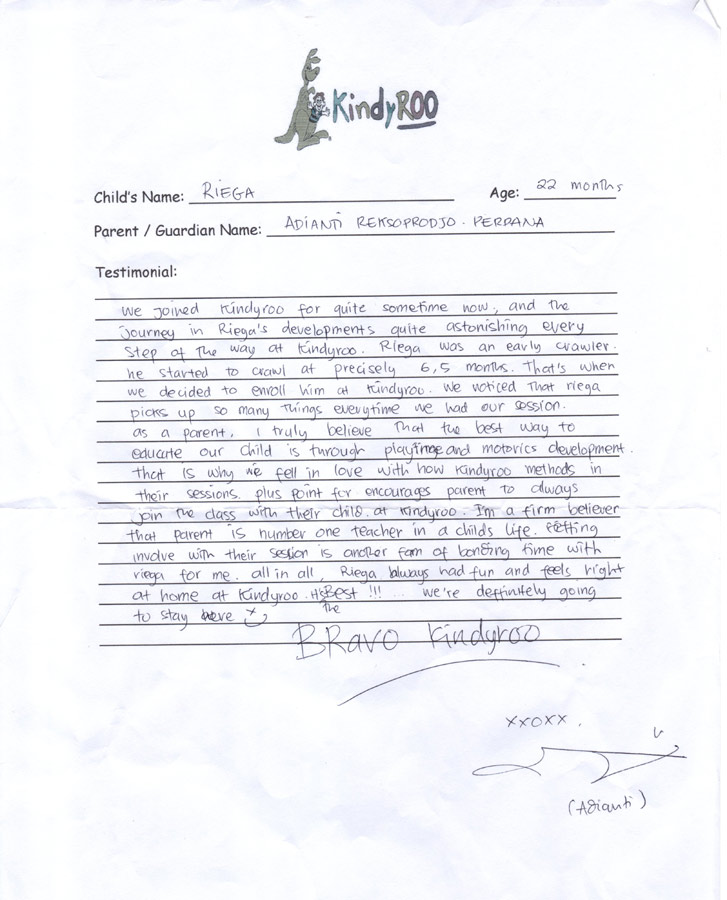 KindyROO
Child's Name: RIEGA Age: 22 months
Parent / Guardian Name: ADIANTI REKSOPRODJO - PERDANA
Testimonial:
we joined Kindyroo for quite sometime now, and the
journey in Riega's developments quite astonishing every
step of the way at Kindyroo. Riega was an early crawler.
he started to crawl at precisely 6,5 months. That's when
we decided to enroll him at Kindyroo. We noticed that riega
picks up so many things everytime we had our session.
as a parent, I truly believe that the best way to
educate our child is through playtime and motorics development.
that is why we fell in love with how Kindyroo methods in
their sessions. plus point for encourages parent to always
join the class with their child at Kindyroo. I'm a firm believer
that parent is number one teacher in a child's life. Getting
involve with their session is another form of bonding time with
riega for me. all in all, Riega always had fun and feels right
at home at Kindyroo. It's the Best !!! ... we're deffinitely going
to stay here
BRavo Kindyroo
xxoxx.
(Adianti)